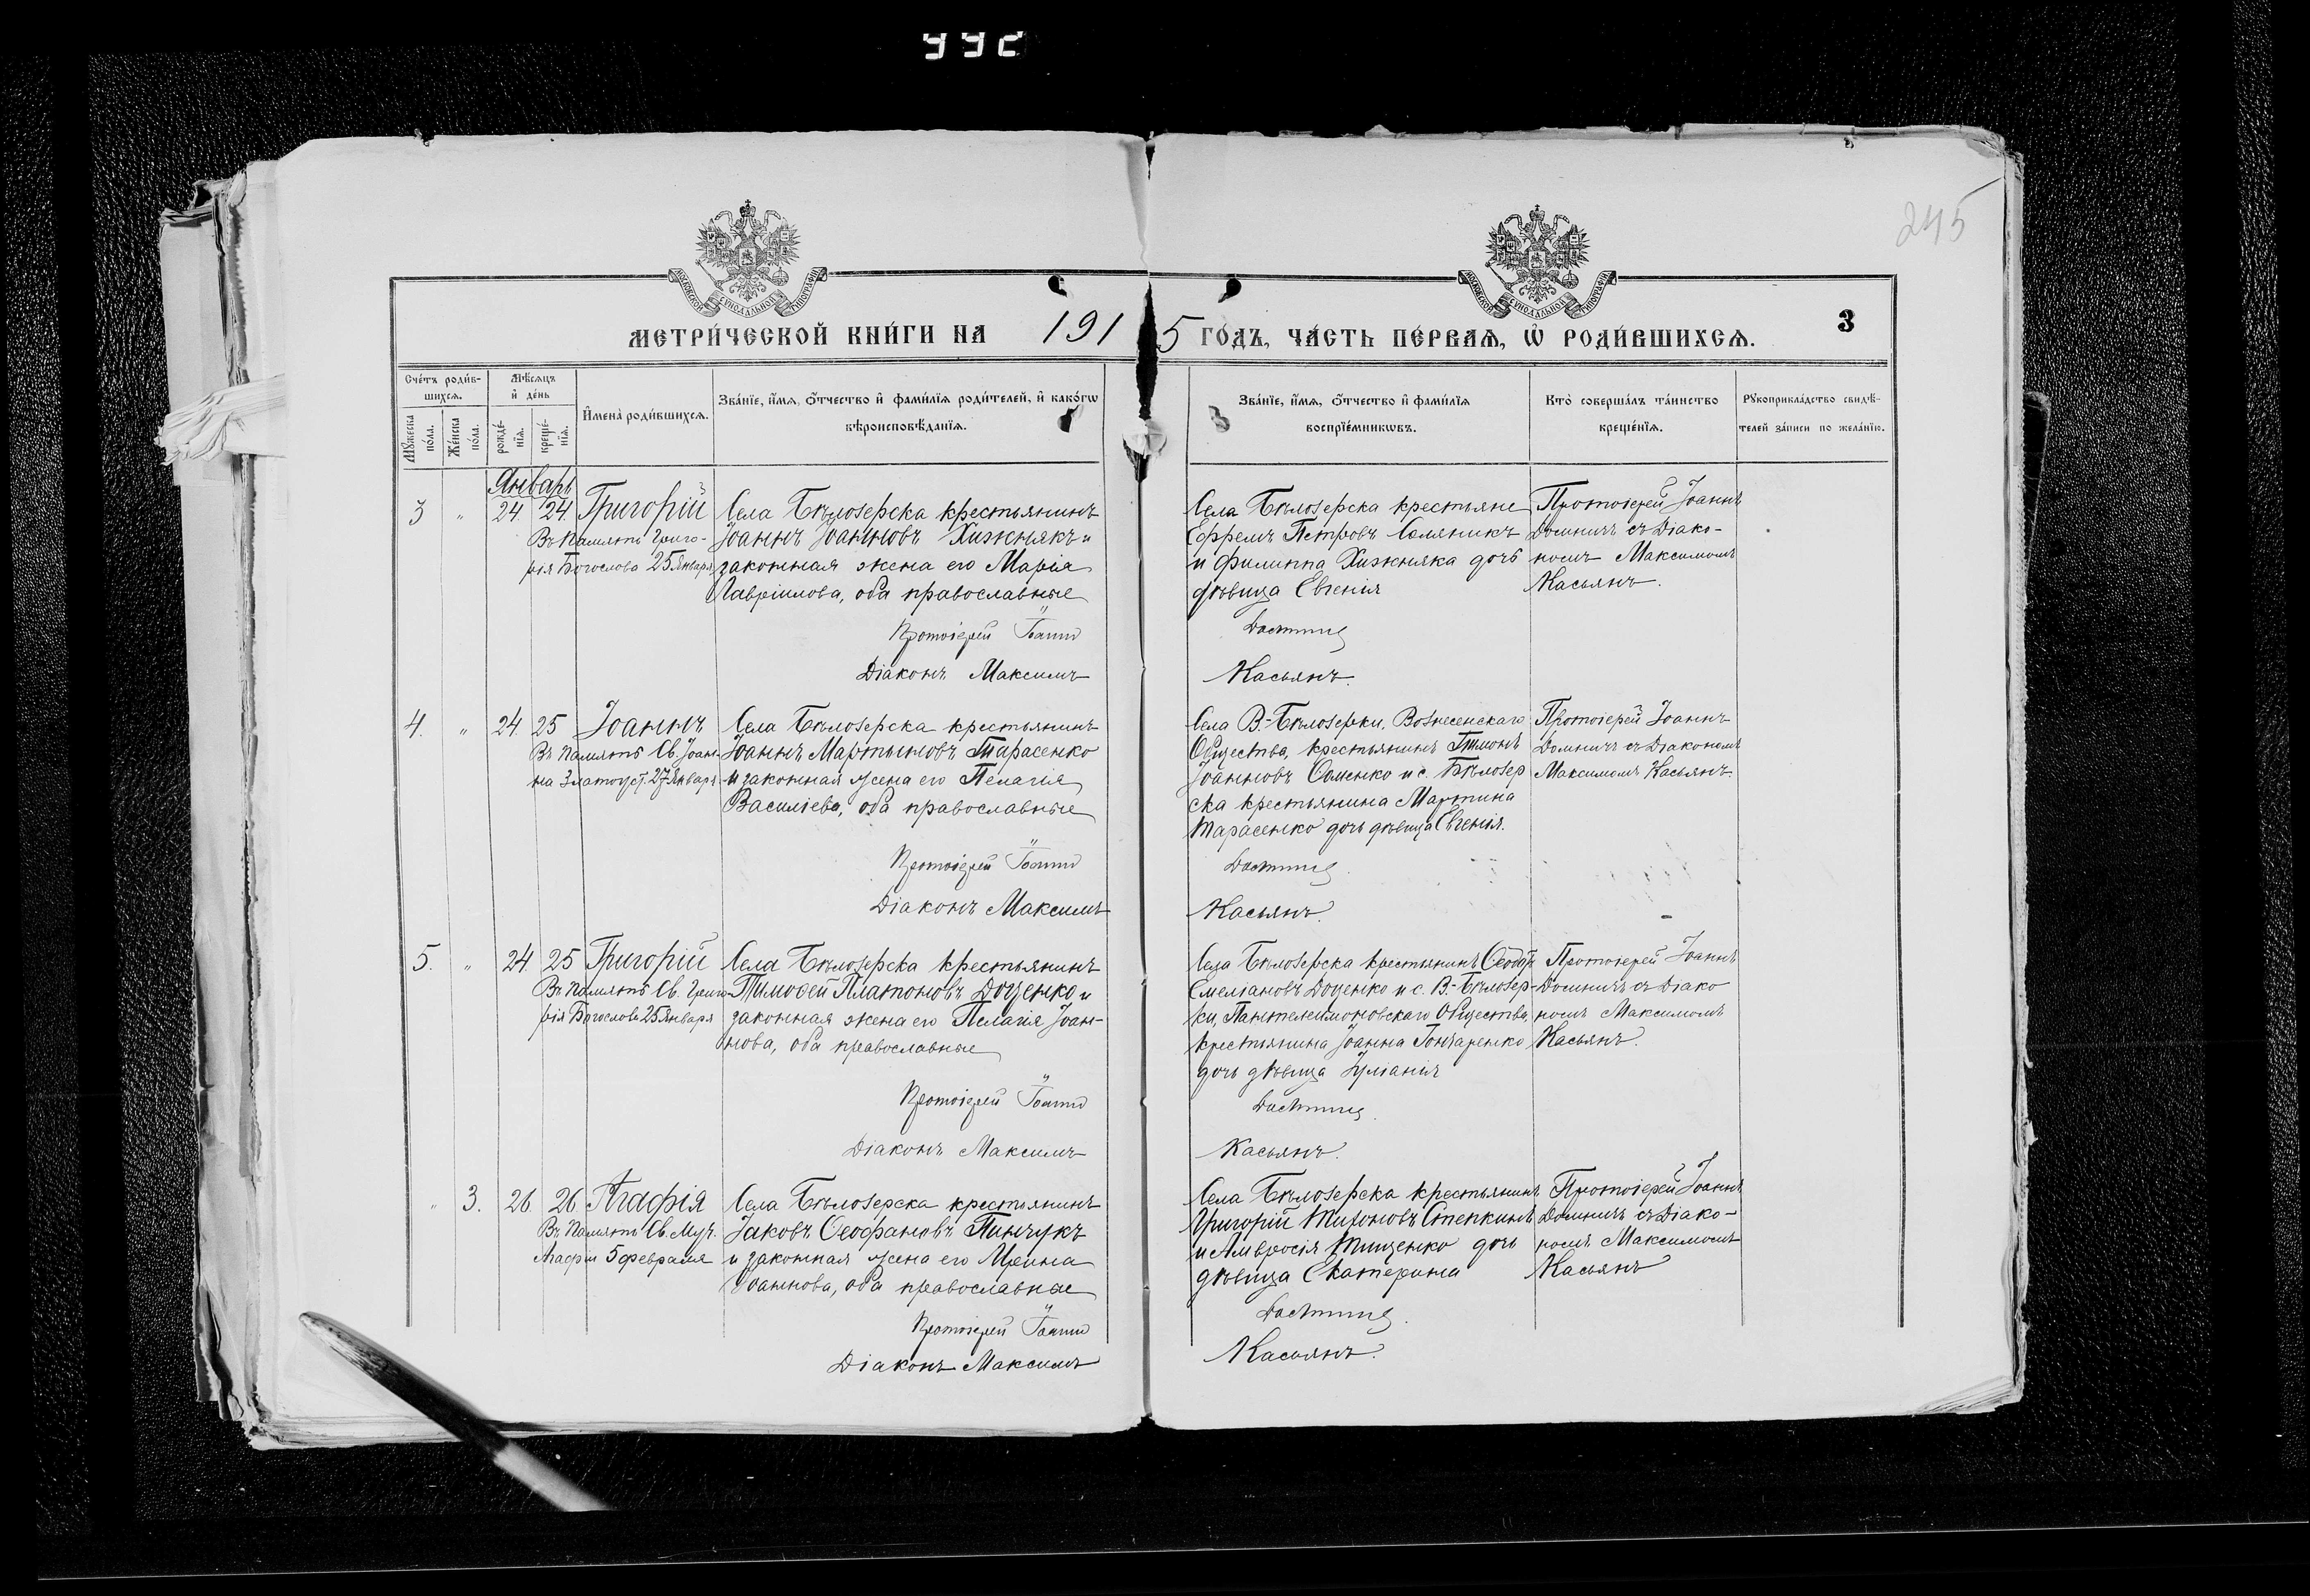 992
245
МОСКОВСКОЙ СѴНОДАЛЬНОЙ ТИПОГРАФІИ
МОСКОВСКОЙ СѴНОДАЛЬНОЙ ТИПОГРАФІИ
МЕТРИ́ЧЕСКОЙ КНИ́ГИ НА 1915 ГО́ДЪ, ЧА́СТЬ ПЕ́РВАѦ, Ѡ҆ РОДИ́ВШИХСѦ.
3
Сче́тъ роди́в-
шихсѧ.
Мꙋ́жеска по́ла.
Же́нска по́ла.
Мѣ́сѧцъ и҆ де́нь
рожде́-нїѧ.
креще́-нїѧ.
И҆мена̀ роди́вшихсѧ.
Зва́нїе, и҆́мѧ, ѻ҆́тчество и҆ фами́лїѧ роди́телей, и҆ како́гѡ
вѣроисповѣ́данїѧ.
Зва́нїе, и҆́мѧ, ѻ҆́тчество и҆ фами́лїѧ
воспрїе́мникѡвъ.
Кто̀ соверша́лъ та́инство
креще́нїѧ.
Рꙋкоприкла́дство свидѣ́-
телей за́писи по жела́нїю.
Январь
3 " 24. 24. Григорій
Въ память Григо-
рія Богослова 25 Января
Села Бѣлозерска крестьянинъ
Іоаннъ Іоанновъ Хижнякъ и
законная жена его Марія
Гавріилова, оба православные
Протоіерей Іоаннъ
Діаконъ Максимъ
Села Бѣлозерска крестьяне
Ефремъ Петровъ Соляникъ
и Филиппа Хижняка дочь
дѣвица Евгенія
Касьянъ.
Протоіерей Іоаннъ
съ Діако-
номъ Максимомъ
Касьянъ.
4. " 24. 25 Іоаннъ
Въ память Св. Іоан-
на Златоуст. 27 Января
Села Бѣлозерска крестьянинъ
Іоаннъ Мартыновъ Тарасенко
и законная жена его Пелагія
Василіева, оба православные
Протоіерей Іоаннъ
Діаконъ Максимъ
Села В.-Бѣлозерки, Вознесенскаго
Общества, крестьянинъ
Іоанновъ и с. Бѣлозер
ска крестьянина Мартина
Тарасенко дочь дѣвица Евгенія.
Касьянъ.
Протоіерей Іоаннъ
съ Діакономъ
Максимомъ Касьянъ.
5. " 24. 25 Григорій
Въ память Св. Григо-
рія Богослова 25 Января
Села Бѣлозерска крестьянинъ
Тимоѳей Платоновъ Доценко и
законная жена его Пелагія Іоан-
нова, оба православные
Протоіерей Іоаннъ
Діаконъ Максимъ
Села Бѣлозерска крестьянинъ Ѳеодоръ
Емеліановъ Доценко и с. В.-Бѣлозер-
ки, Пантелеимоновскаго Общества,
крестьянина Іоанна Гончаренко
дочь дѣвица Іуліанія
Касьянъ.
Протоіерей Іоаннъ
съ Діако
номъ Максимомъ
Касьянъ.
" 3. 26. 26. Агафія
Въ память Св. Муч.
Агафіи 5 февраля
Села Бѣлозерска крестьянинъ
Іаковъ Ѳеофановъ Пинчукъ
и законная жена его Ирина
Іоаннова, оба православные
Протоіерей Іоаннъ
Діаконъ Максимъ
Села Бѣлозерска крестьянинъ
Григорій Тихоновъ Степкинъ
и Амвросія Тищенко дочь
дѣвица Екатерина
Касьянъ.
Протоіерей Іоаннъ
съ Діако-
номъ Максимомъ
Касьянъ